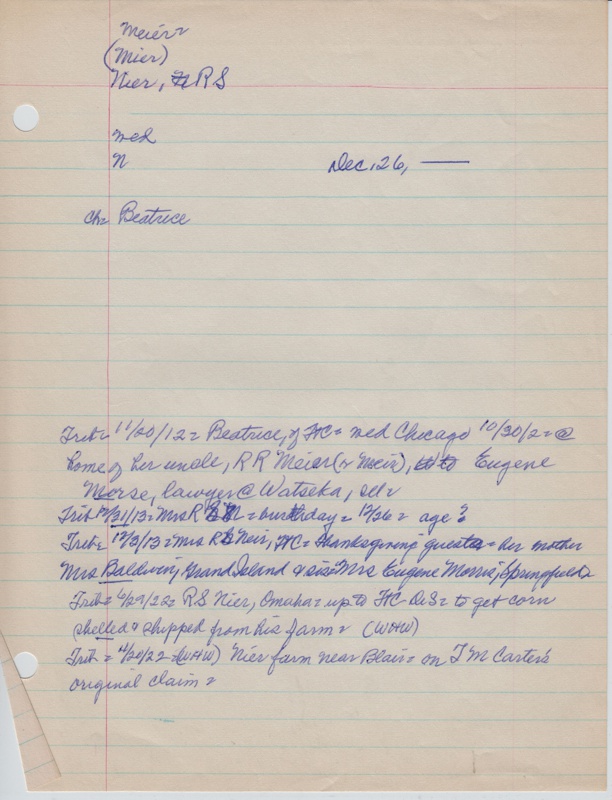 Meier =
(Mier)
Nier, R S
wed
N
Dec, 26, —
ch = Beatrice
Trib = 11/20/12 = Beatrice, of FtC = wed Chicago 10/30/2 = @
home of her uncle, R R Meier (or Meir), to Eugene
Morse, lawyer @ Watseka, Ill =
Trib 12/31/13 = Mrs R S N = birthday = 12/26 = age?
Trib = 12/3/13 = Mrs R S Neir, FtC = Thanksgiving guests = her mother
Mrs Baldwin, Grand Island & sis = Mrs Eugene Morris, Springfield =
Trib = 6/29/22 = R S Nier, Omaha = up to FtC = to get corn
shelled & shipped from his farm = (W&W)
Trib = 4/20/22 = (W&W) Nier farm near Blair = on T M Carter's
original claim =